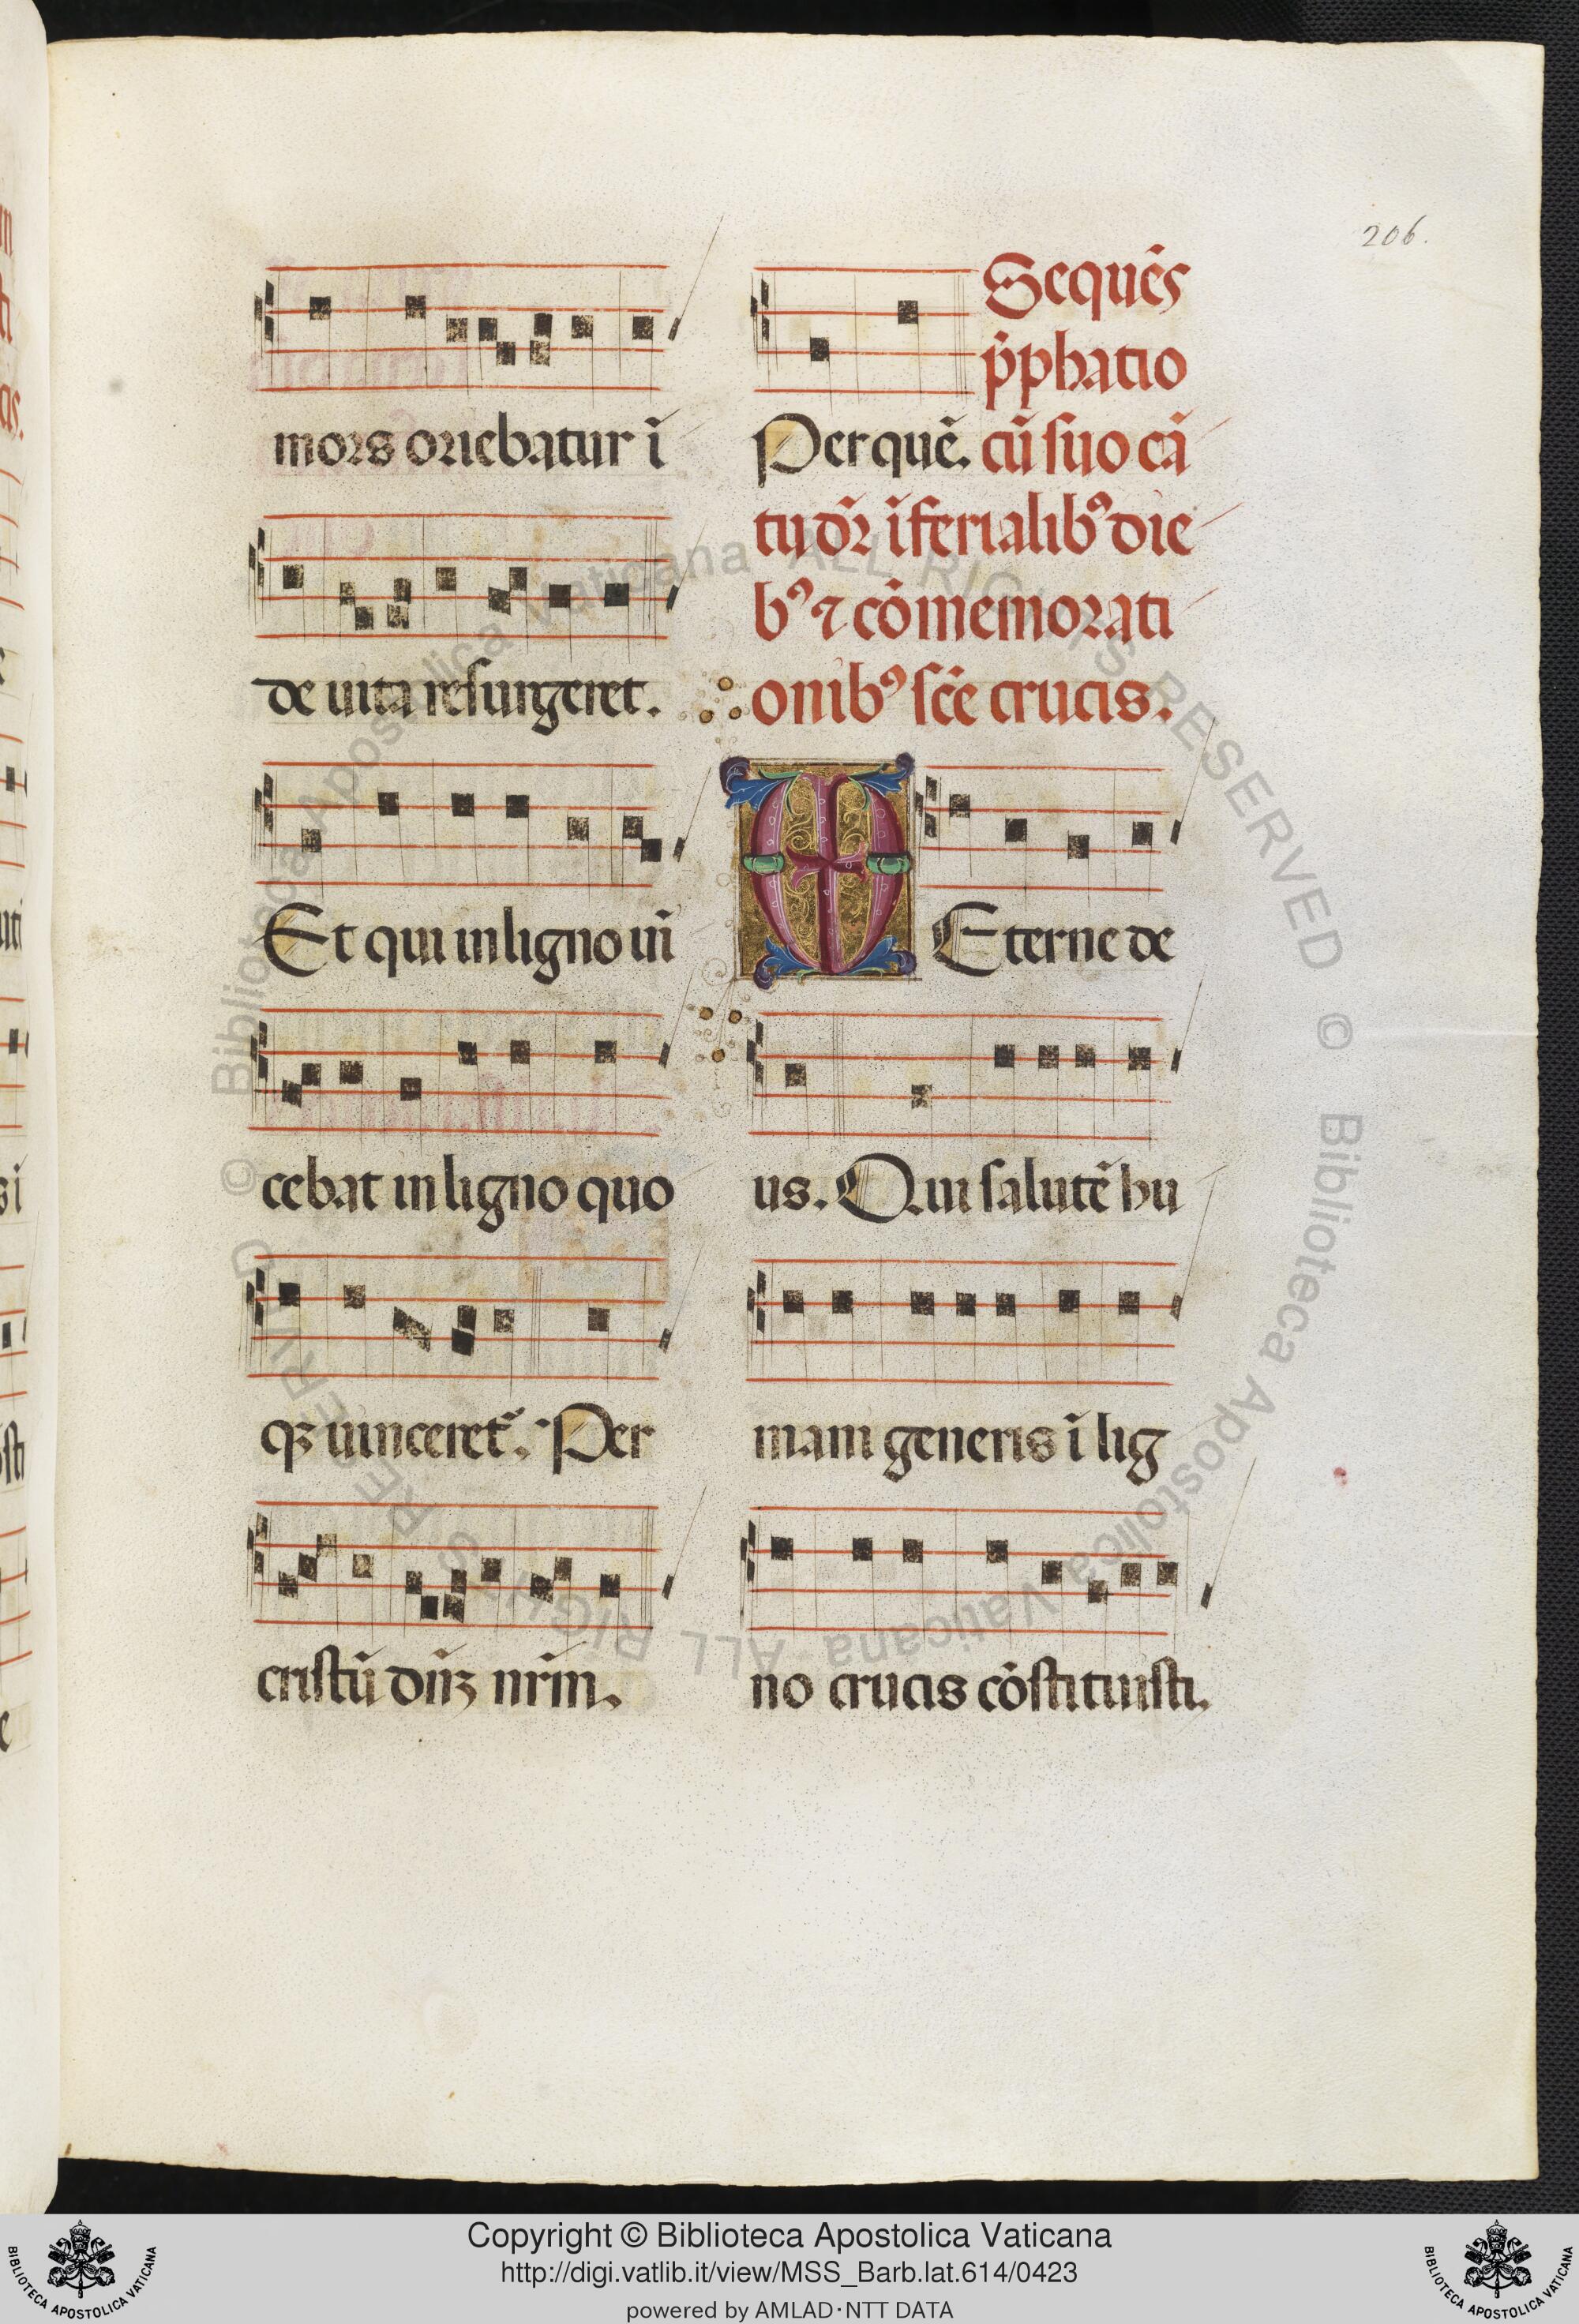 206.
mors oriebatur ĩ
de uita resurgeret.
Et qui in ligno uĩ
cebat in ligno quo
qꝫ uinceretᷣ. Per
cristũ dñꝫ nr̃m.
Sequẽs
p̃phatio
Per quẽ. cũ suo cã
tu dr̃ ĩ ferialibꝰ die
bꝰ ⁊ cõmemorati
onibꝰ sc̃e crucis.
M Eterne de
us. Qui salutẽ hu
mani generis ĩ lig
no crucis cõstituisti.
© Biblioteca Apostolica Vaticana ALL RIGHTS RESERVED © Biblioteca Apostolica Vaticana ALL RIGHTS RESERVED
Copyright © Biblioteca Apostolica Vaticana
http://digi.vatlib.it/view/MSS_Barb.lat.614/0423
powered by AMLAD·NTT DATA
BIBLIOTECA APOSTOLICA VATICANA
BIBLIOTECA APOSTOLICA VATICANA